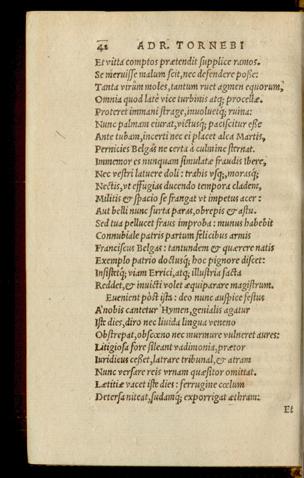 42 ADR. TORNEBI
Et vitta comptos prætendit supplice ramos.
Se meruisse malum scit, nec defendere posse:
Tanta virûm moles, tantum ruet agmen equorum,
Omnia quod latè vice turbinis atq; procellæ.
Proteret immani strage, inuoluetq; ruina:
Nunc palmam eiurat, victusq; paciscitur esse
Ante tubam, incerti nec ei placet alea Martis,
Pernicies Belgas ne certa à culmine sternat.
Immemor es nunquam simulatæ fraudis Ibere,
Nec vestri latuere doli: trahis vsq; morasq;
Nectis, vt effugias ducendo tempora cladem,
Militis & spacio se frangat vt impetus acer:
Aut belli nunc furta paras, obrepis & astu.
Sed tua pellucet fraus improba: munus habebit
Connubiale patris partum felicibus armis
Franciscus Belgas: tantundem & quærere natis
Exemplo patrio doctusq; hoc pignore discet:
Insistetq; viam Errici, atq; illustria facta
Reddet, & inuicti volet æquiparare magistrum.
Euenient pòst ista: deo nunc auspice festus
A nobis cantetur Hymen, genialis agatur
Iste dies, diro nec liuida lingua veneno
Obstrepat, obscœno nec murmure vulneret aures:
Litigiosa fore sileant vadimonia, prætor
Iuridicus cesset, latrare tribunal, & atram
Nunc versare reis vrnam quæsitor omittat.
Lætitiæ vacet iste dies: ferrugine cœlum
Detersa niteat, sudamq; exporrigat æthram:
Et